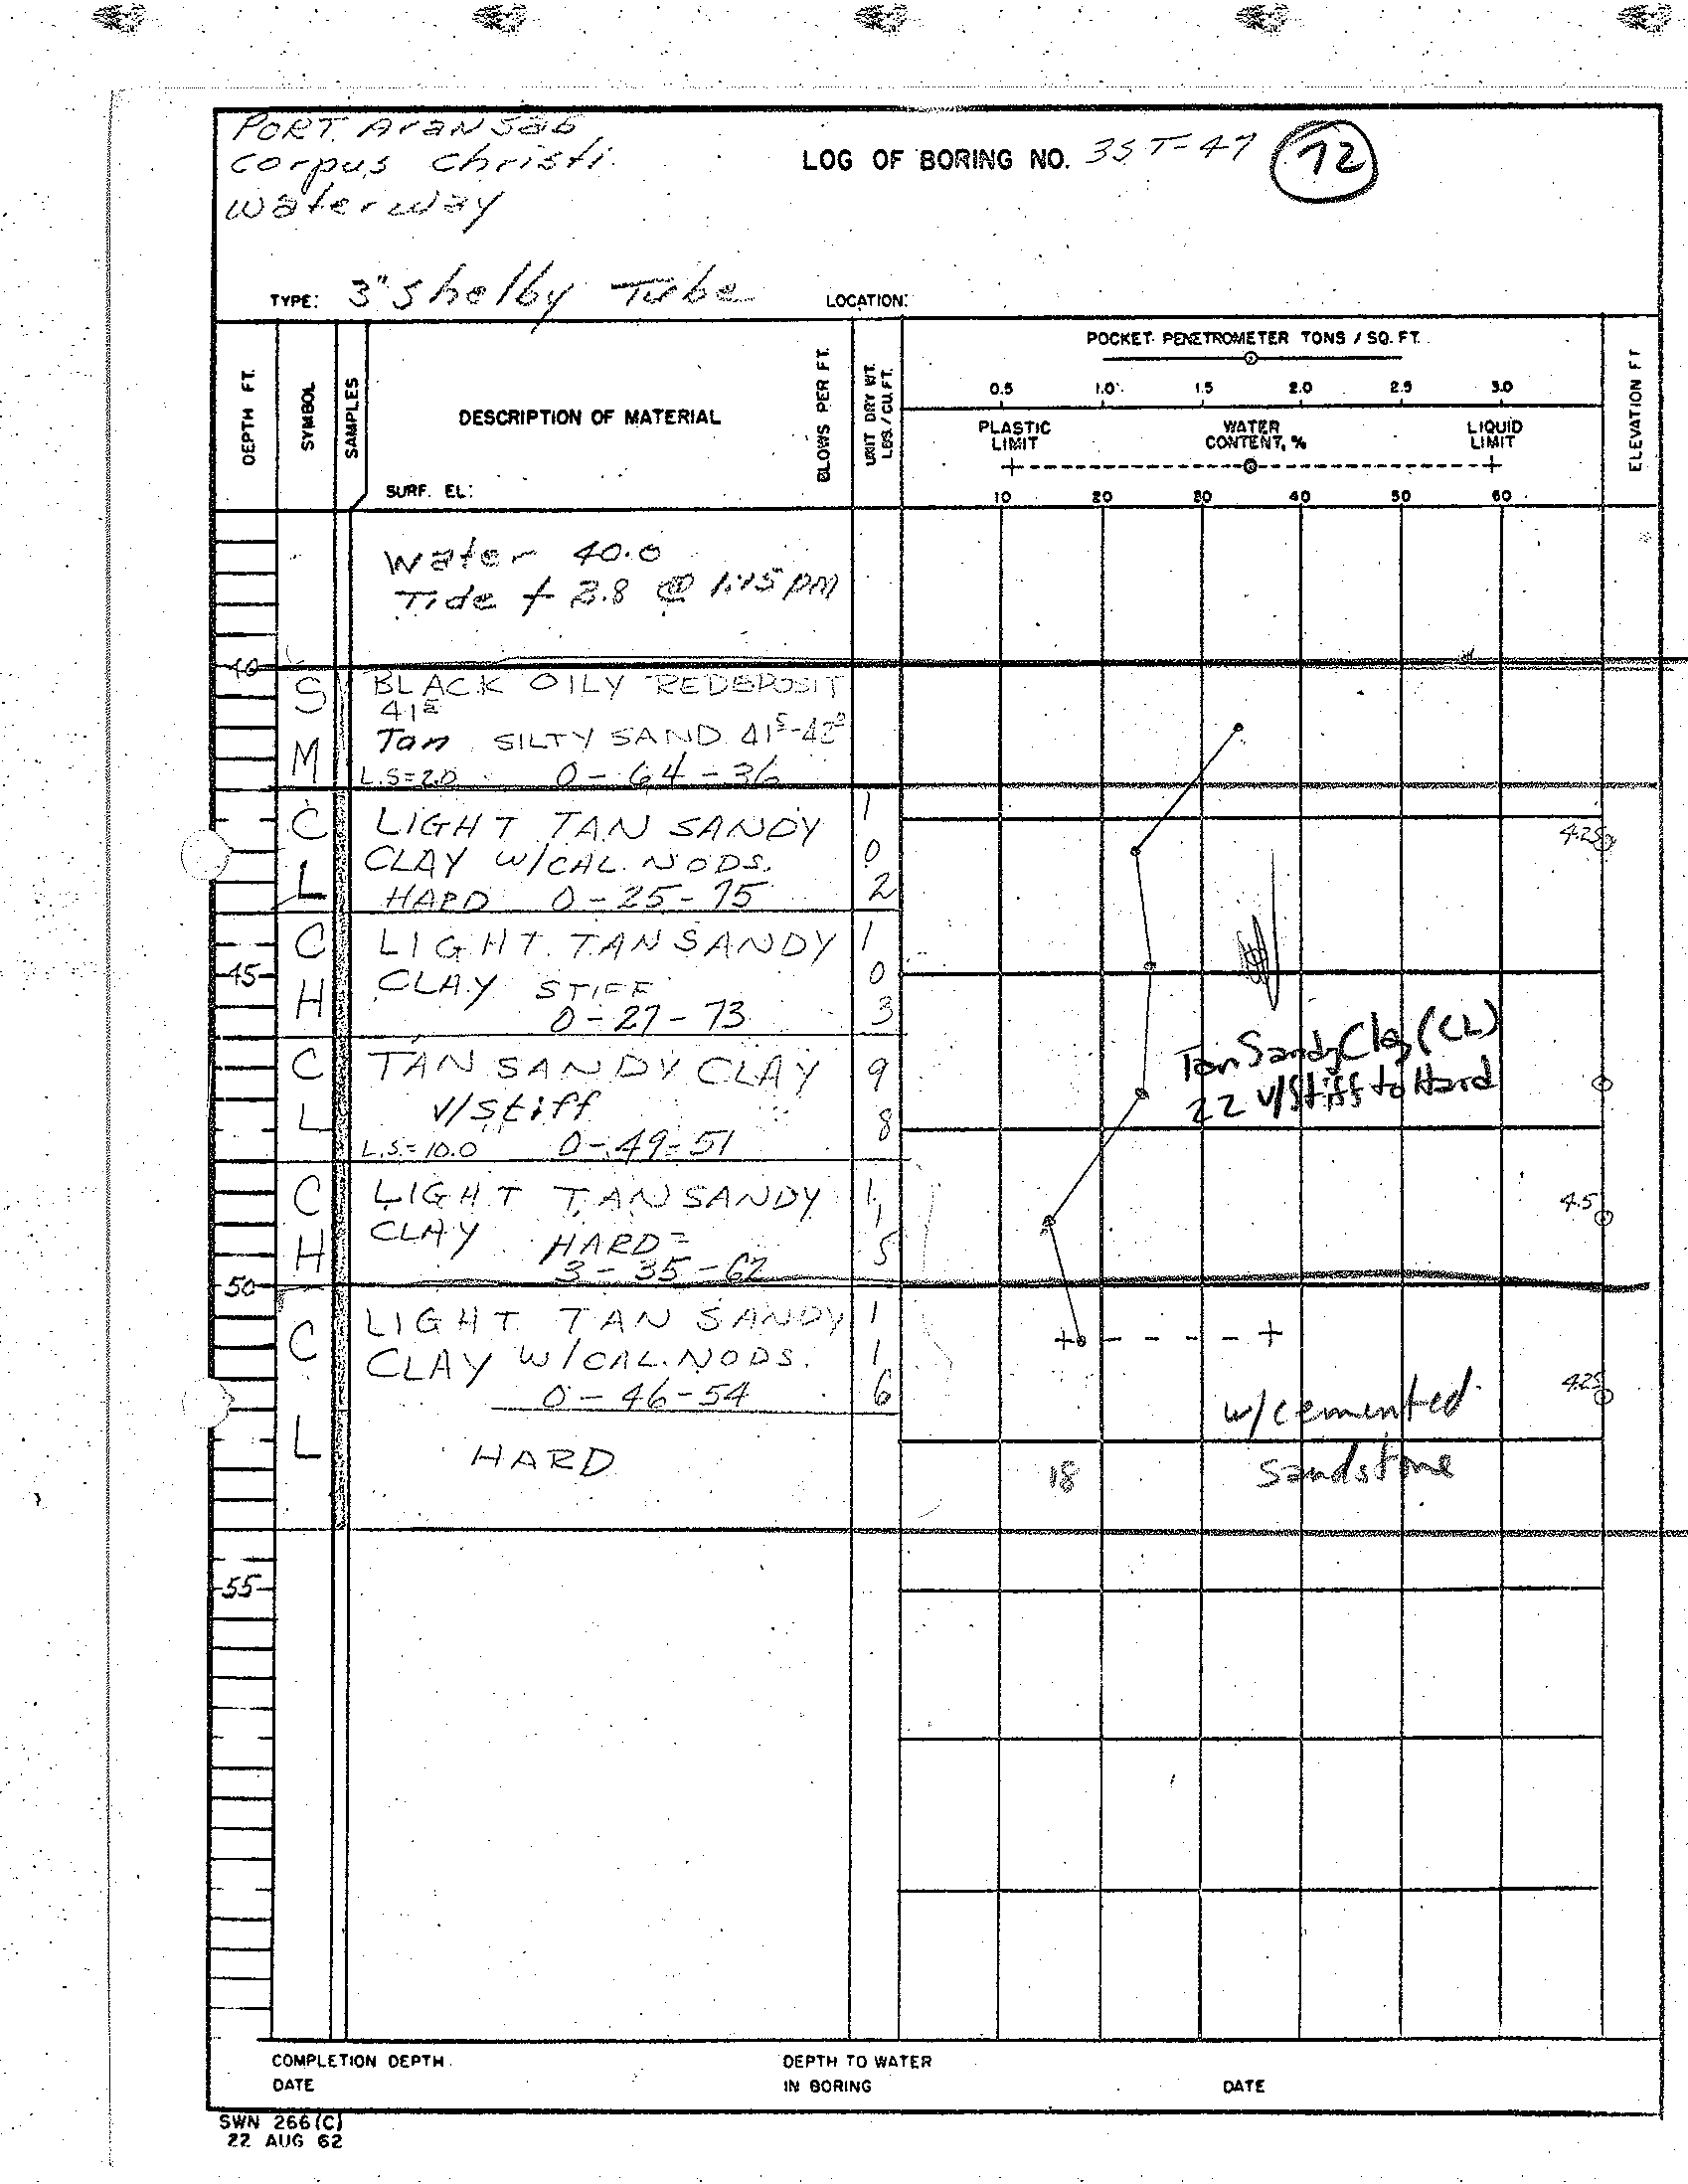 PORT Aransas
Corpus Christi
Waterway
LOG OF BORING NO. 3ST-47 72
TYPE: 3" Shelby Tube LOCATION:
DEPTH FT.
SYMBOL
SAMPLES
DESCRIPTION OF MATERIAL
SURF. EL:
BLOWS PER FT.
UNIT DRY WT. LBS./CU.FT.
POCKET PENETROMETER TONS / SQ. FT.
0.5 1.0 1.5 2.0 2.5 3.0
PLASTIC LIMIT
WATER CONTENT, %
LIQUID LIMIT
10 20 30 40 50 60
ELEVATION FT
Water 40.0
Tide + 2.8 @ 1:45 PM
40
SM
BLACK OILY REDEPOSIT
Tan SILTY SAND 41⁵-42⁰
L.S=2.0 0-64-36
CL
LIGHT TAN SANDY 102
CLAY W/CAL. NODS.
HARD 0-25-75
4.25
CH
LIGHT TAN SANDY 103
45
CLAY STIFF
0-27-73
CL
TAN SANDY CLAY 98
V/Stiff
L.S.=10.0 0-49-51
Tan Sandy Clay (CL)
22 V/Stiff to Hard
CH
LIGHT TAN SANDY 115
CLAY HARD
3-35-62
4.5
50
CL
LIGHT TAN SANDY 116
CLAY W/CAL. NODS.
0-46-54
HARD
4.25
w/cemented
18 Sandstone
55
COMPLETION DEPTH
DATE
DEPTH TO WATER
IN BORING
DATE
SWN 266(C)
22 AUG 62